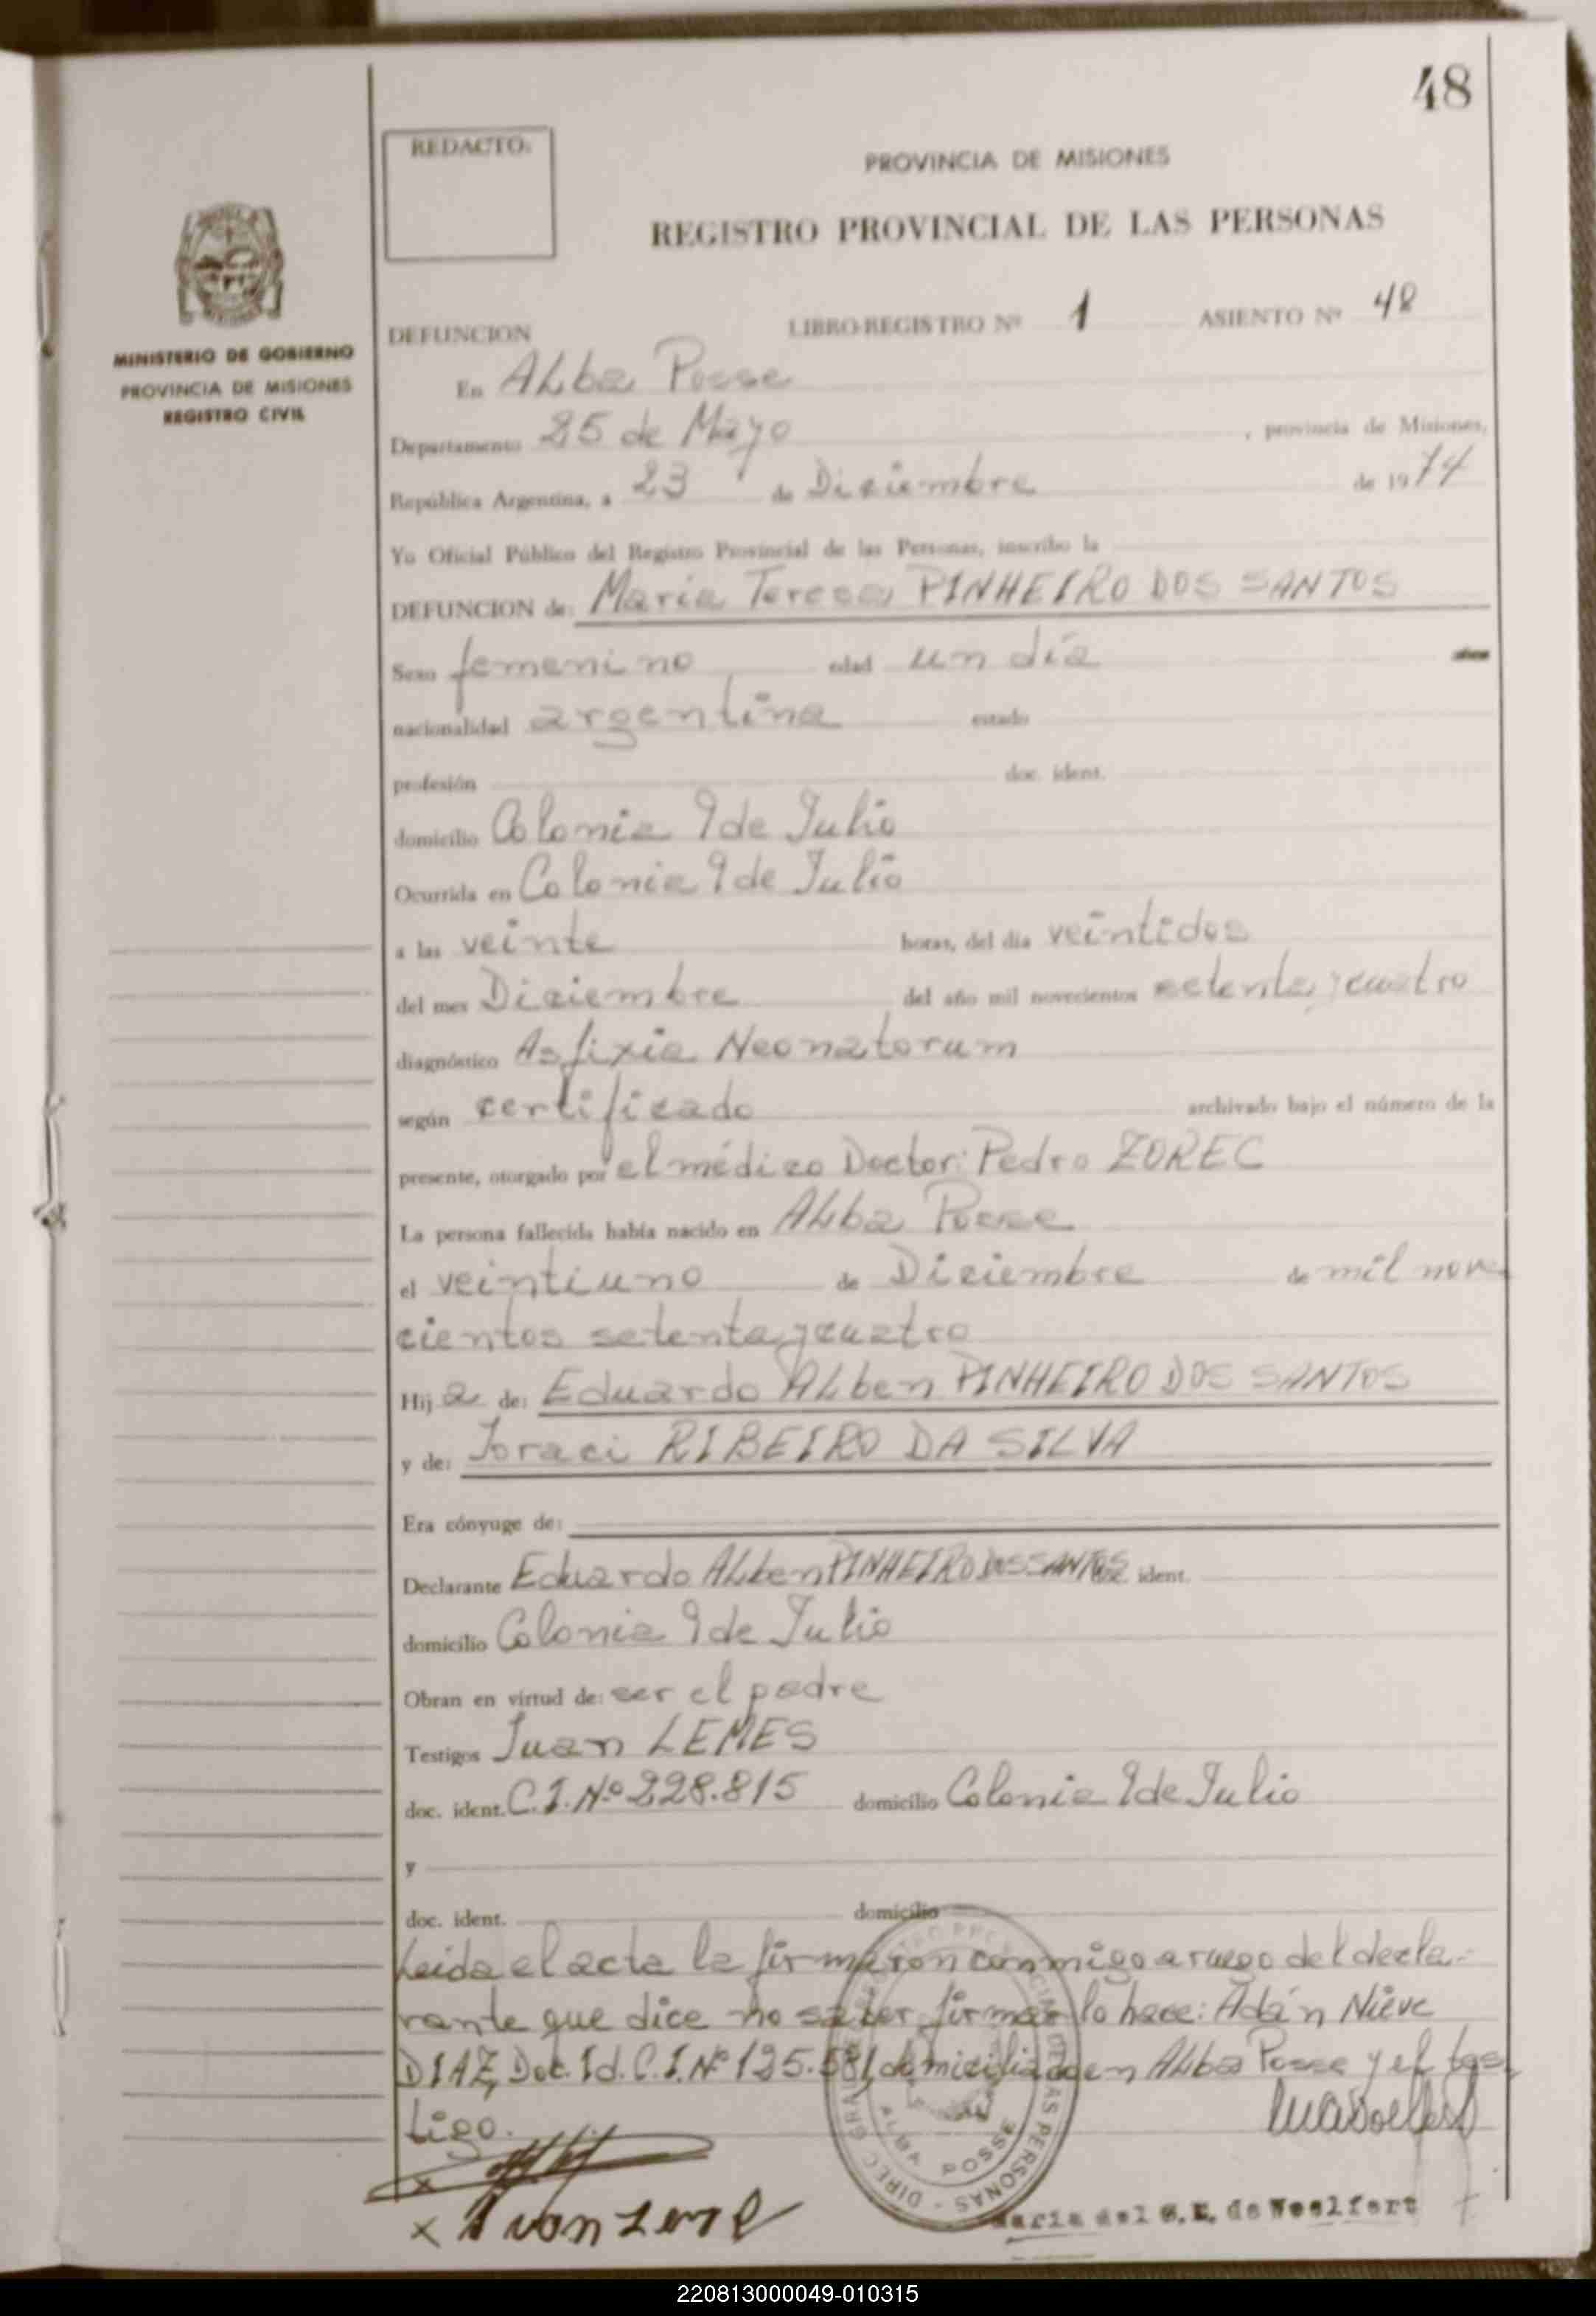 48
REDACTO:
PROVINCIA DE MISIONES
REGISTRO PROVINCIAL DE LAS PERSONAS
MINISTERIO DE GOBIERNO
PROVINCIA DE MISIONES
REGISTRO CIVIL
DEFUNCION LIBRO-REGISTRO Nº 1 ASIENTO Nº 48
En Alba Posse
Departamento 25 de Mayo, provincia de Misiones,
República Argentina, a 23 de Diciembre de 1974
Yo Oficial Público del Registro Provincial de las Personas, inscribo la
DEFUNCION de: María Teresa PINHEIRO DOS SANTOS
Sexo femenino edad un día años
nacionalidad argentina estado
profesión doc. ident.
domicilio Colonia 9 de Julio
Ocurrida en Colonia 9 de Julio
a las veinte horas, del día veintidos
del mes Diciembre del año mil novecientos setenta y cuatro
diagnóstico Asfixia Neonatorum
según certificado archivado bajo el número de la
presente, otorgado por el médico Doctor: Pedro ZOREC
La persona fallecida había nacido en Alba Posse
el veintiuno de Diciembre de mil nove
cientos setenta y cuatro
Hija de: Eduardo Alben PINHEIRO DOS SANTOS
y de: Ioraci RIBEIRO DA SILVA
Era cónyuge de:
Declarante Eduardo Alben PINHEIRO DOS SANTOS doc. ident.
domicilio Colonia 9 de Julio
Obran en virtud de: ser el padre
Testigos Juan LEMES
doc. ident. C.I.Nº 228.815 domicilio Colonia 9 de Julio
y
doc. ident. domicilio
Leida el acta la firmaron conmigo a ruego del decla-
rante que dice no saber firmar lo hace: Adán Nieve
DIAZ, Doc. Id. C.I.Nº 125.581, domiciliado en Alba Posse y el tes
tigo.
ALBA POSSE
DE LAS PERSONAS - DIREC GRAL
x
x Juan Leme
María del C. E. de Woelfert
220813000049-010315